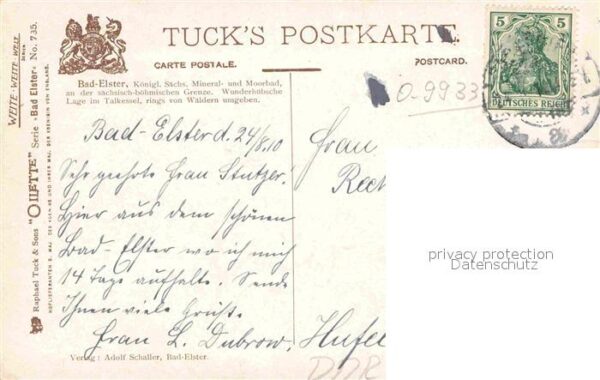 TUCK'S POSTKARTE.
CARTE POSTALE.
POSTCARD.
Bad-Elster, Königl. Sächs. Mineral- und Moorbad,
an der sächsisch-böhmischen Grenze. Wunderhübsche
Lage im Talkessel, rings von Wäldern umgeben.
5 5
DEUTSCHES REICH
0-9933
Bad-Elster d. 24/8.10
Sehr geehrte Frau Stutzer!
Hier aus dem schönen
Bad-Elster wo ich mich
14 Tage aufhalte. Sende
Ihnen viele Grüße.
Frau L. Dubrow.
Frau
Rect
Hufel
Verlag: Adolf Schaller, Bad-Elster.
WEITE-WEITE-WELT
Raphael Tuck & Sons "OILETTE" Serie „Bad Elster" No. 735.
privacy protection
Datenschutz